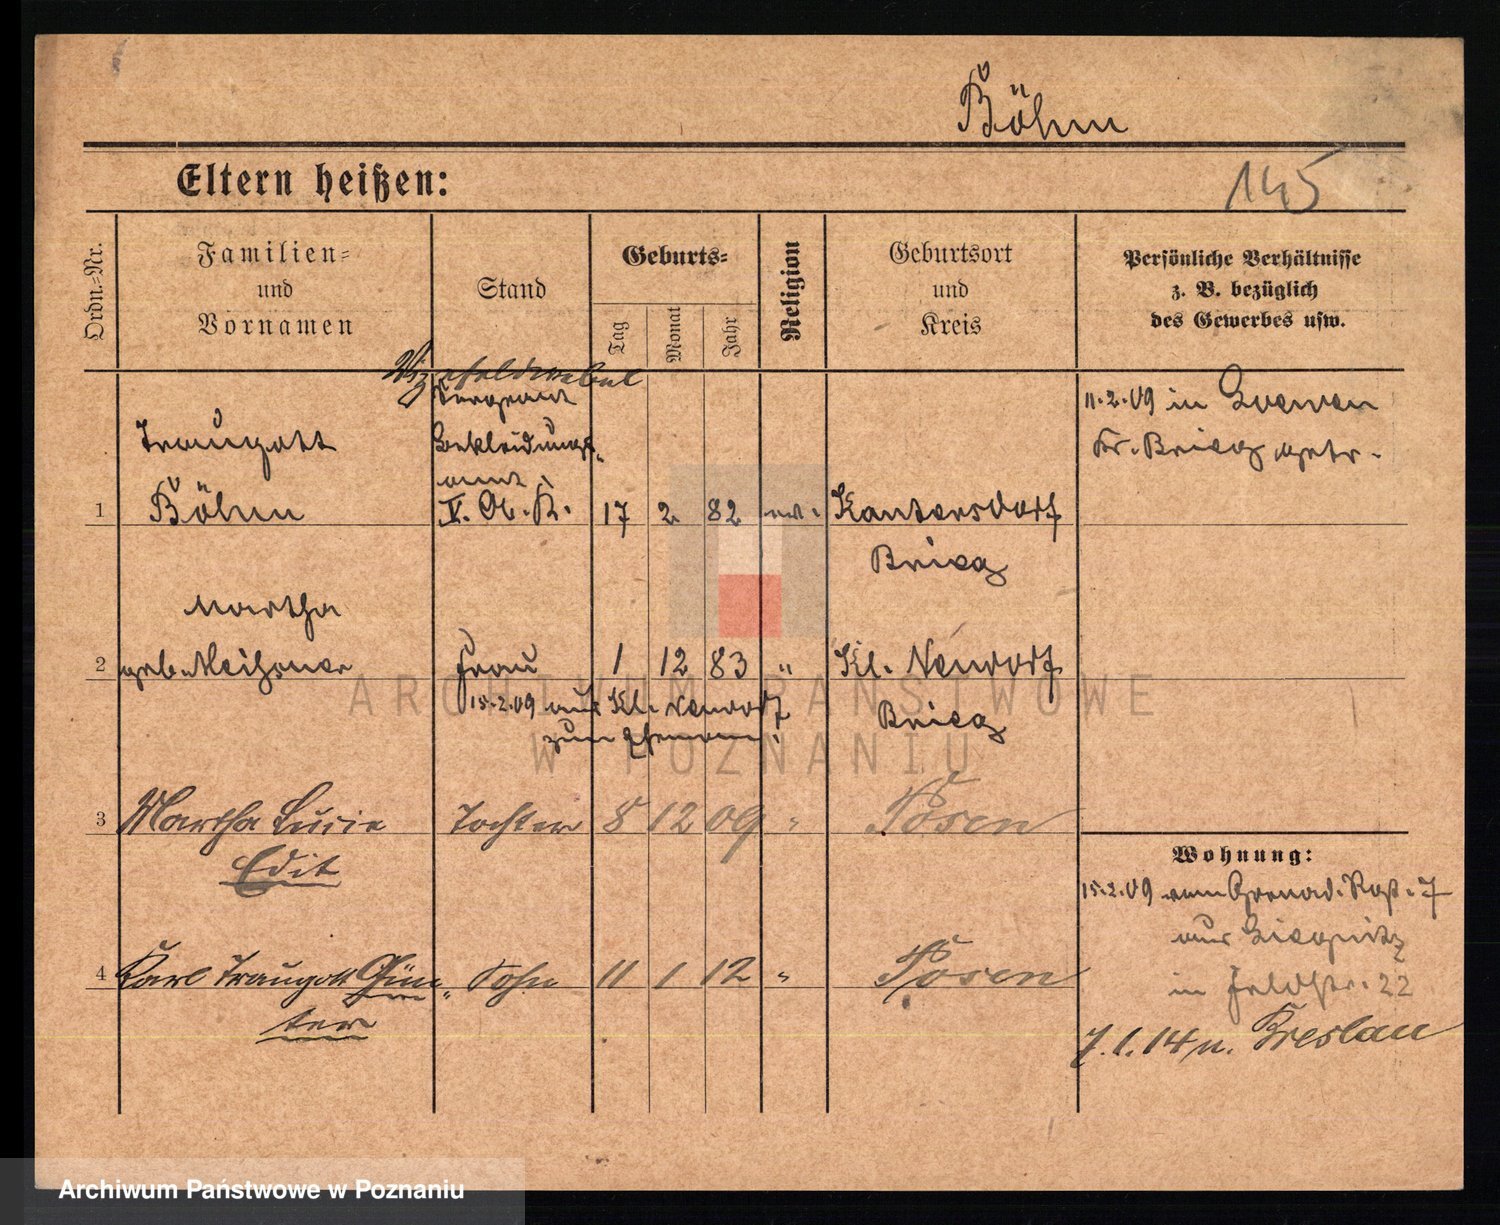 Böhm
Eltern heißen:
145
Ordn.-Nr.
Familien-
und
Vornamen
Stand
Geburts-
Tag
Monat
Jahr
Religion
Geburtsort
und
Kreis
Persönliche Verhältnisse
z. B. bezüglich
des Gewerbes usw.
Vizefeldwebel
Sergeant
Bekleidungs-
amt
V. A. K.
Traugott
1 Böhm 17 2 82 ev. Kantersdorf
Brieg
11.2.09 in
Kr. Brieg getr.
Martha
2 geb. Meißner Frau 1 12 83 " Kl. Neudorf
Brieg
15.2.09 aus Kl. Neudorf
zum Ehemann.
3 Martha Lucie Tochter 8 12 09 " Posen
Edit
4 Karl Traugott Gün- Sohn 11 1 12 " Posen
ter
Wohnung:
15.2.09 vom Grenad. Rgt. 7
aus Liegnitz
in Feldstr. 22
7.1.14 n. Breslau
ARCHIWUM PAŃSTWOWE
W POZNANIU
Archiwum Państwowe w Poznaniu